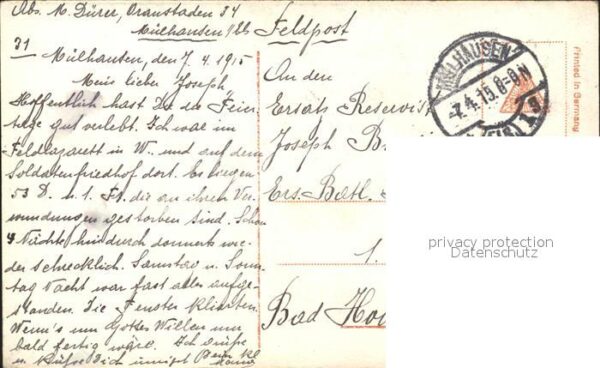 Abs. M. Dürer, Oranstaden 34
Mülhausen i/Els
Feldpost
31
Mülhausen, den 7.4.1915
Mein lieber Joseph,
Hoffentlich hast Du die Feier-
tage gut verlebt. Ich war im
Feldlazarett in W. und auf dem
Soldatenfriedhof dort. Es liegen
53 D. u. 1. Fr. die an ihren Ver-
wundungen gestorben sind. Schon
4 Nächte hindurch donnert wie-
der schrecklich. Samstag u. Sonn-
tag Nacht war fast alles aufge-
standen. Die Fenster klirrten.
Wenn's um Gottes Willen nur
bald fertig wäre. Ich grüße
u. küsse Dich innigst Deine kl.
An den
Ersatz Reservist
Joseph B
Ers. Batl.
1.
Bad Ho
MÜLHAUSEN
-7.4.15. 8-9 N
(ELS) 1 g
Printed in Germany
privacy protection
Datenschutz